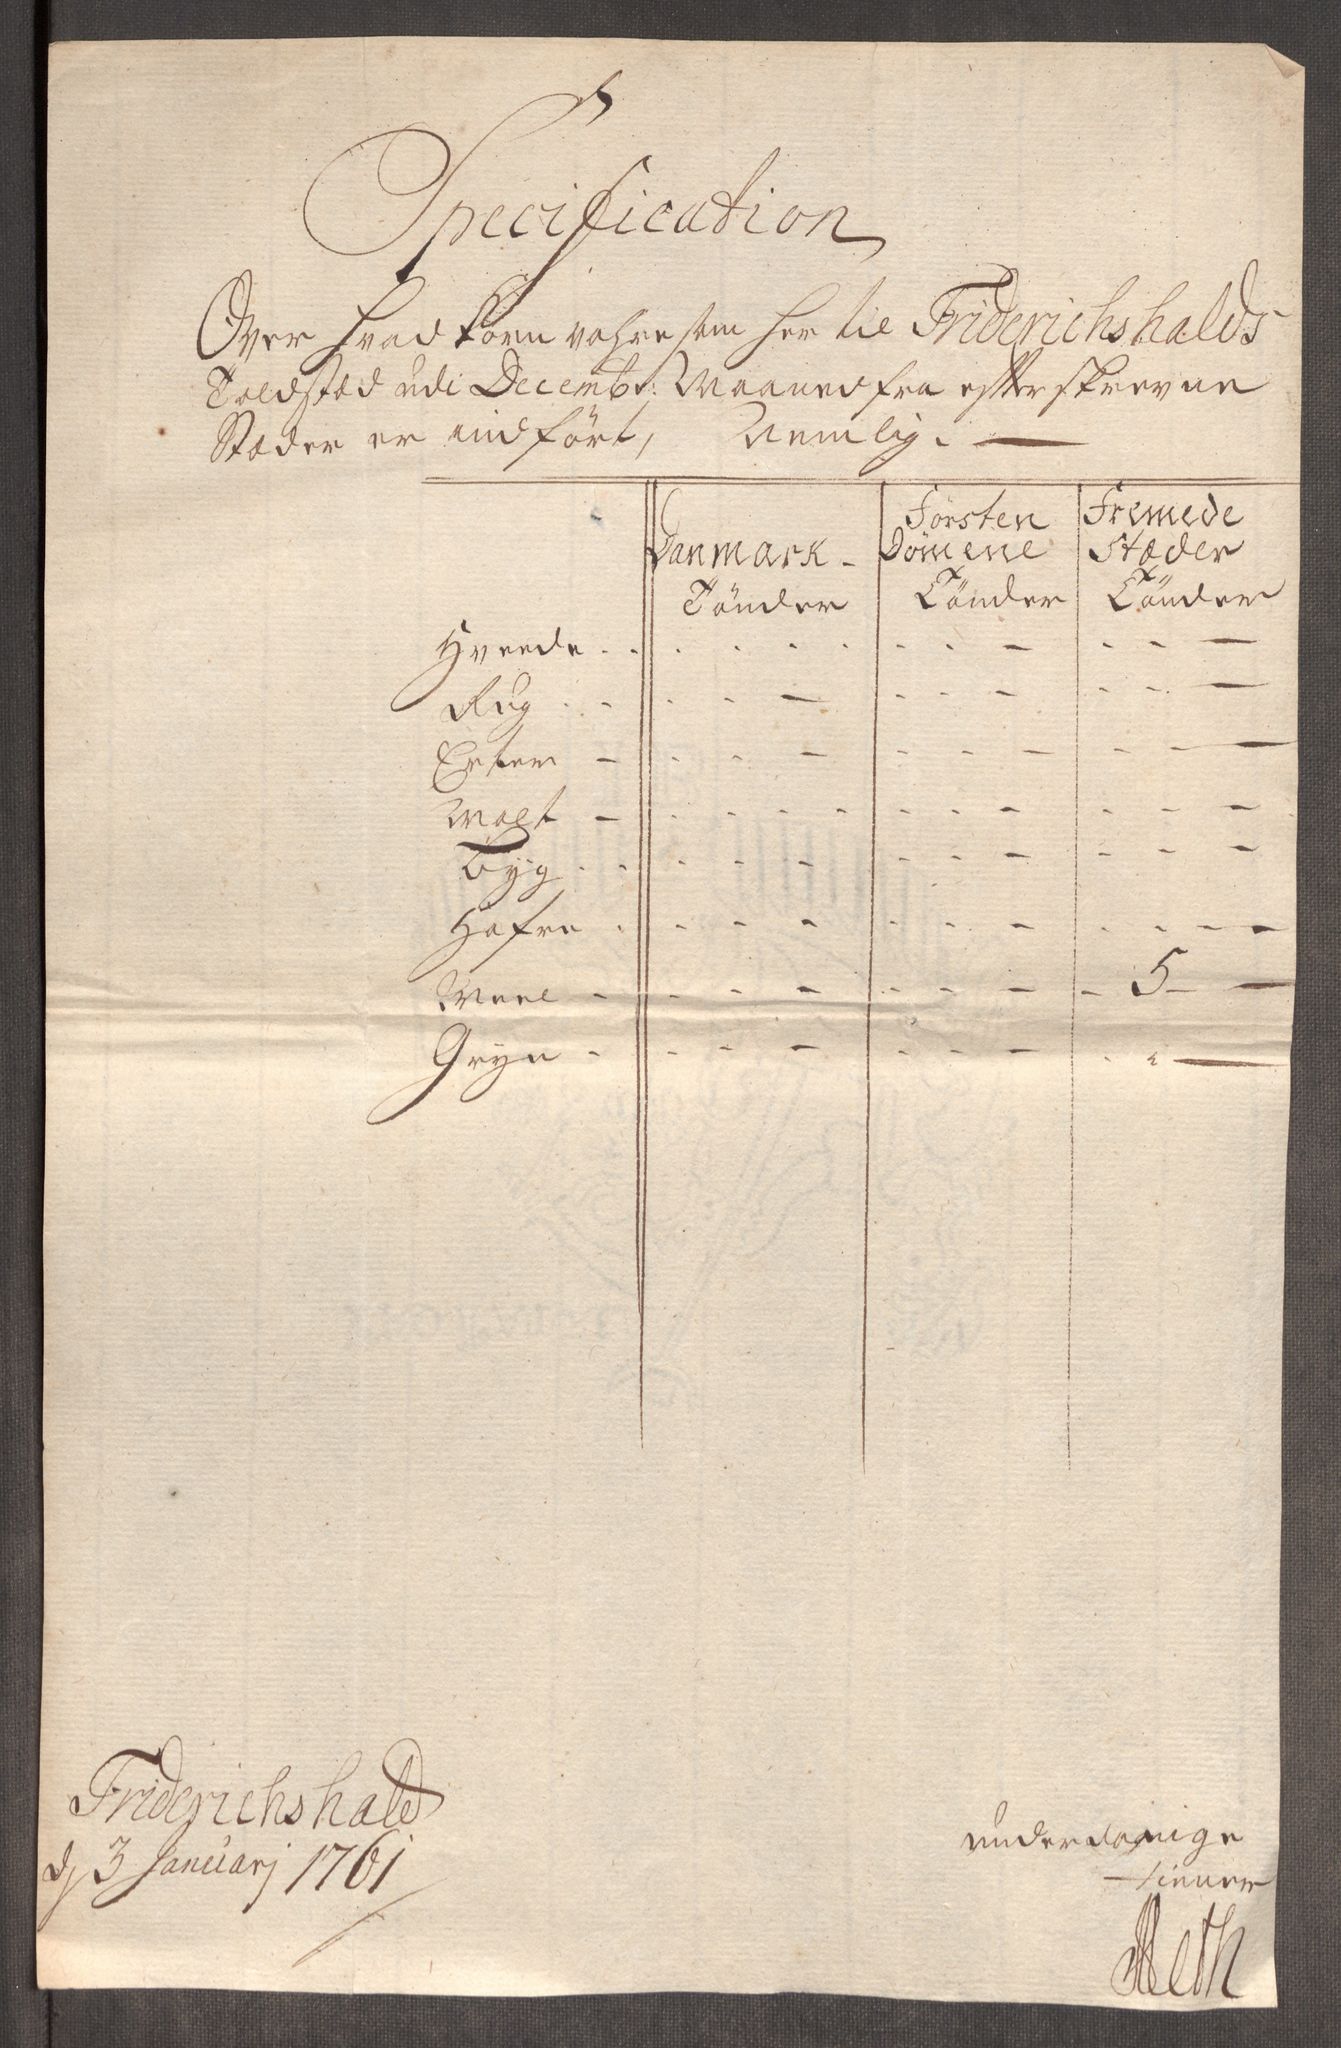 Specification
Over hvad Korn vahre som her til Friderichshalds
Toldstæd udi Decembr: Maaned fra efterskrevne
Stæder er indført, Nemlig.
Försten Fremede
Danmark - Dömene Stæder
Tönder Tönder Tönder
Hveede
Rug
Erter
Malt
Byg
Hafre
Meel - 5 -
Gryn
Friderichshald
d 3 Januarj 1761
underdanige
tienner